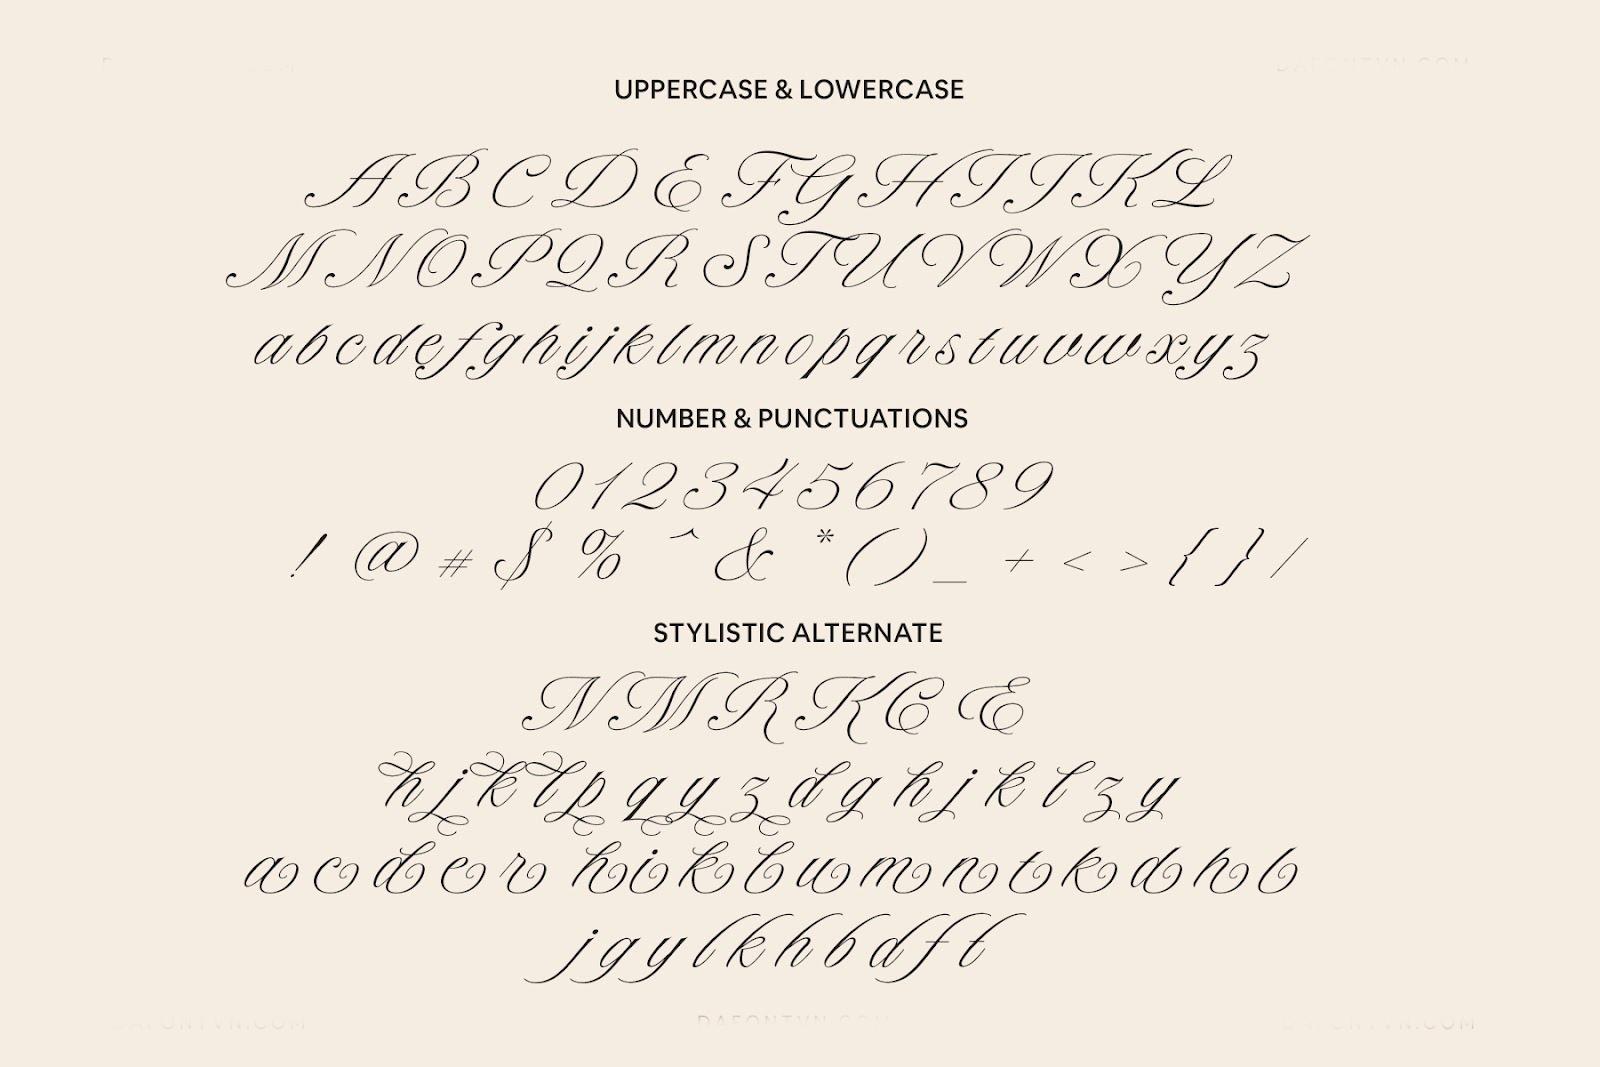 DAFONTVN.COM
UPPERCASE & LOWERCASE
A B C D E F G H I J K L
M N O P Q R S T U V W X Y Z
a b c d e f g h i j k l m n o p q r s t u v w x y z
NUMBER & PUNCTUATIONS
0 1 2 3 4 5 6 7 8 9
! @ # $ % ^ & * ( ) _ + < > { } /
STYLISTIC ALTERNATE
N M R K C E
h j k l p q y z d g h j k l z y
a c d e r h i k l u m n t k d h l
j g y l k h b d f t
DAFONTVN.COM DAFONTVN.COM DAFONTVN.COM